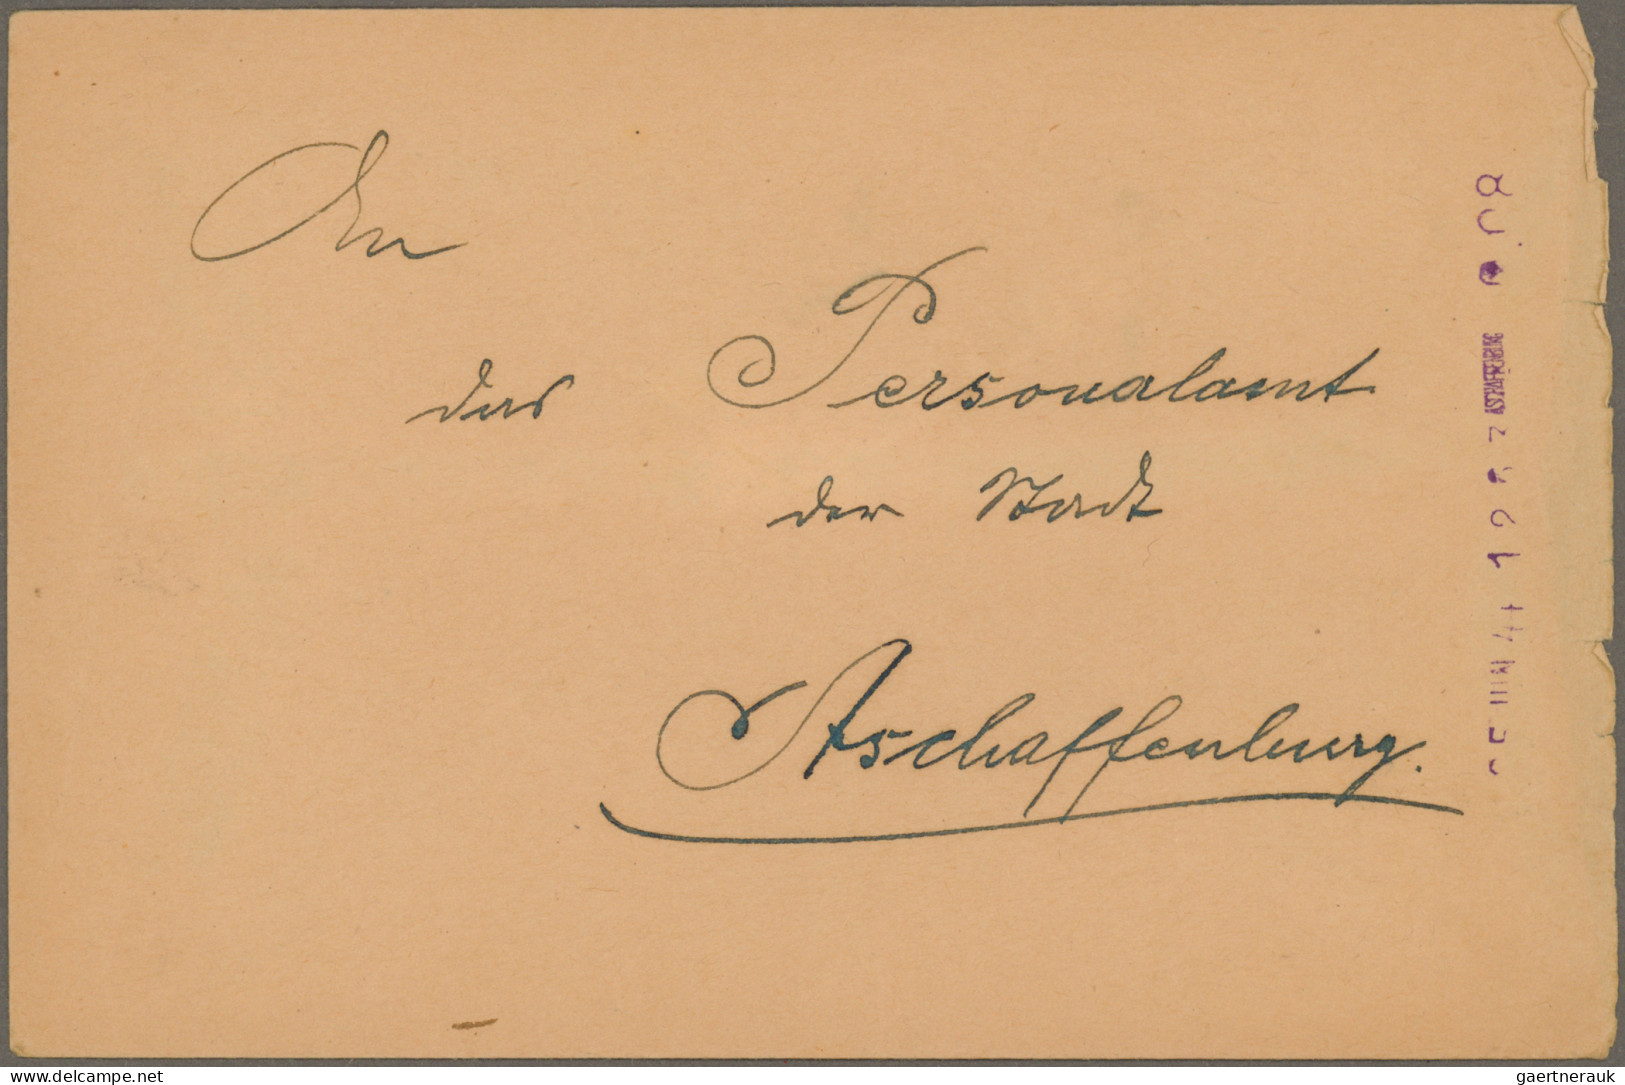 An
das Personalamt
der Stadt
Aschaffenburg.
ASCHAFFENBURG
www.delcampe.net
gaertnerauk